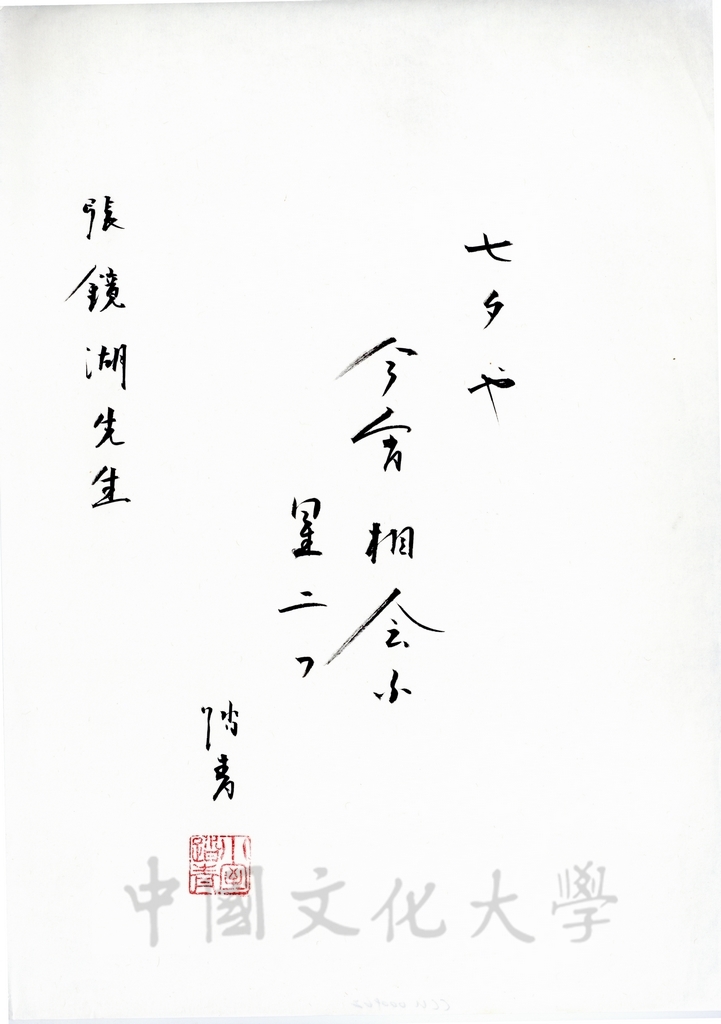 七夕や
今宵相会ふ
星二つ
踏青
張鏡湖先生
踏青
中國文化大學